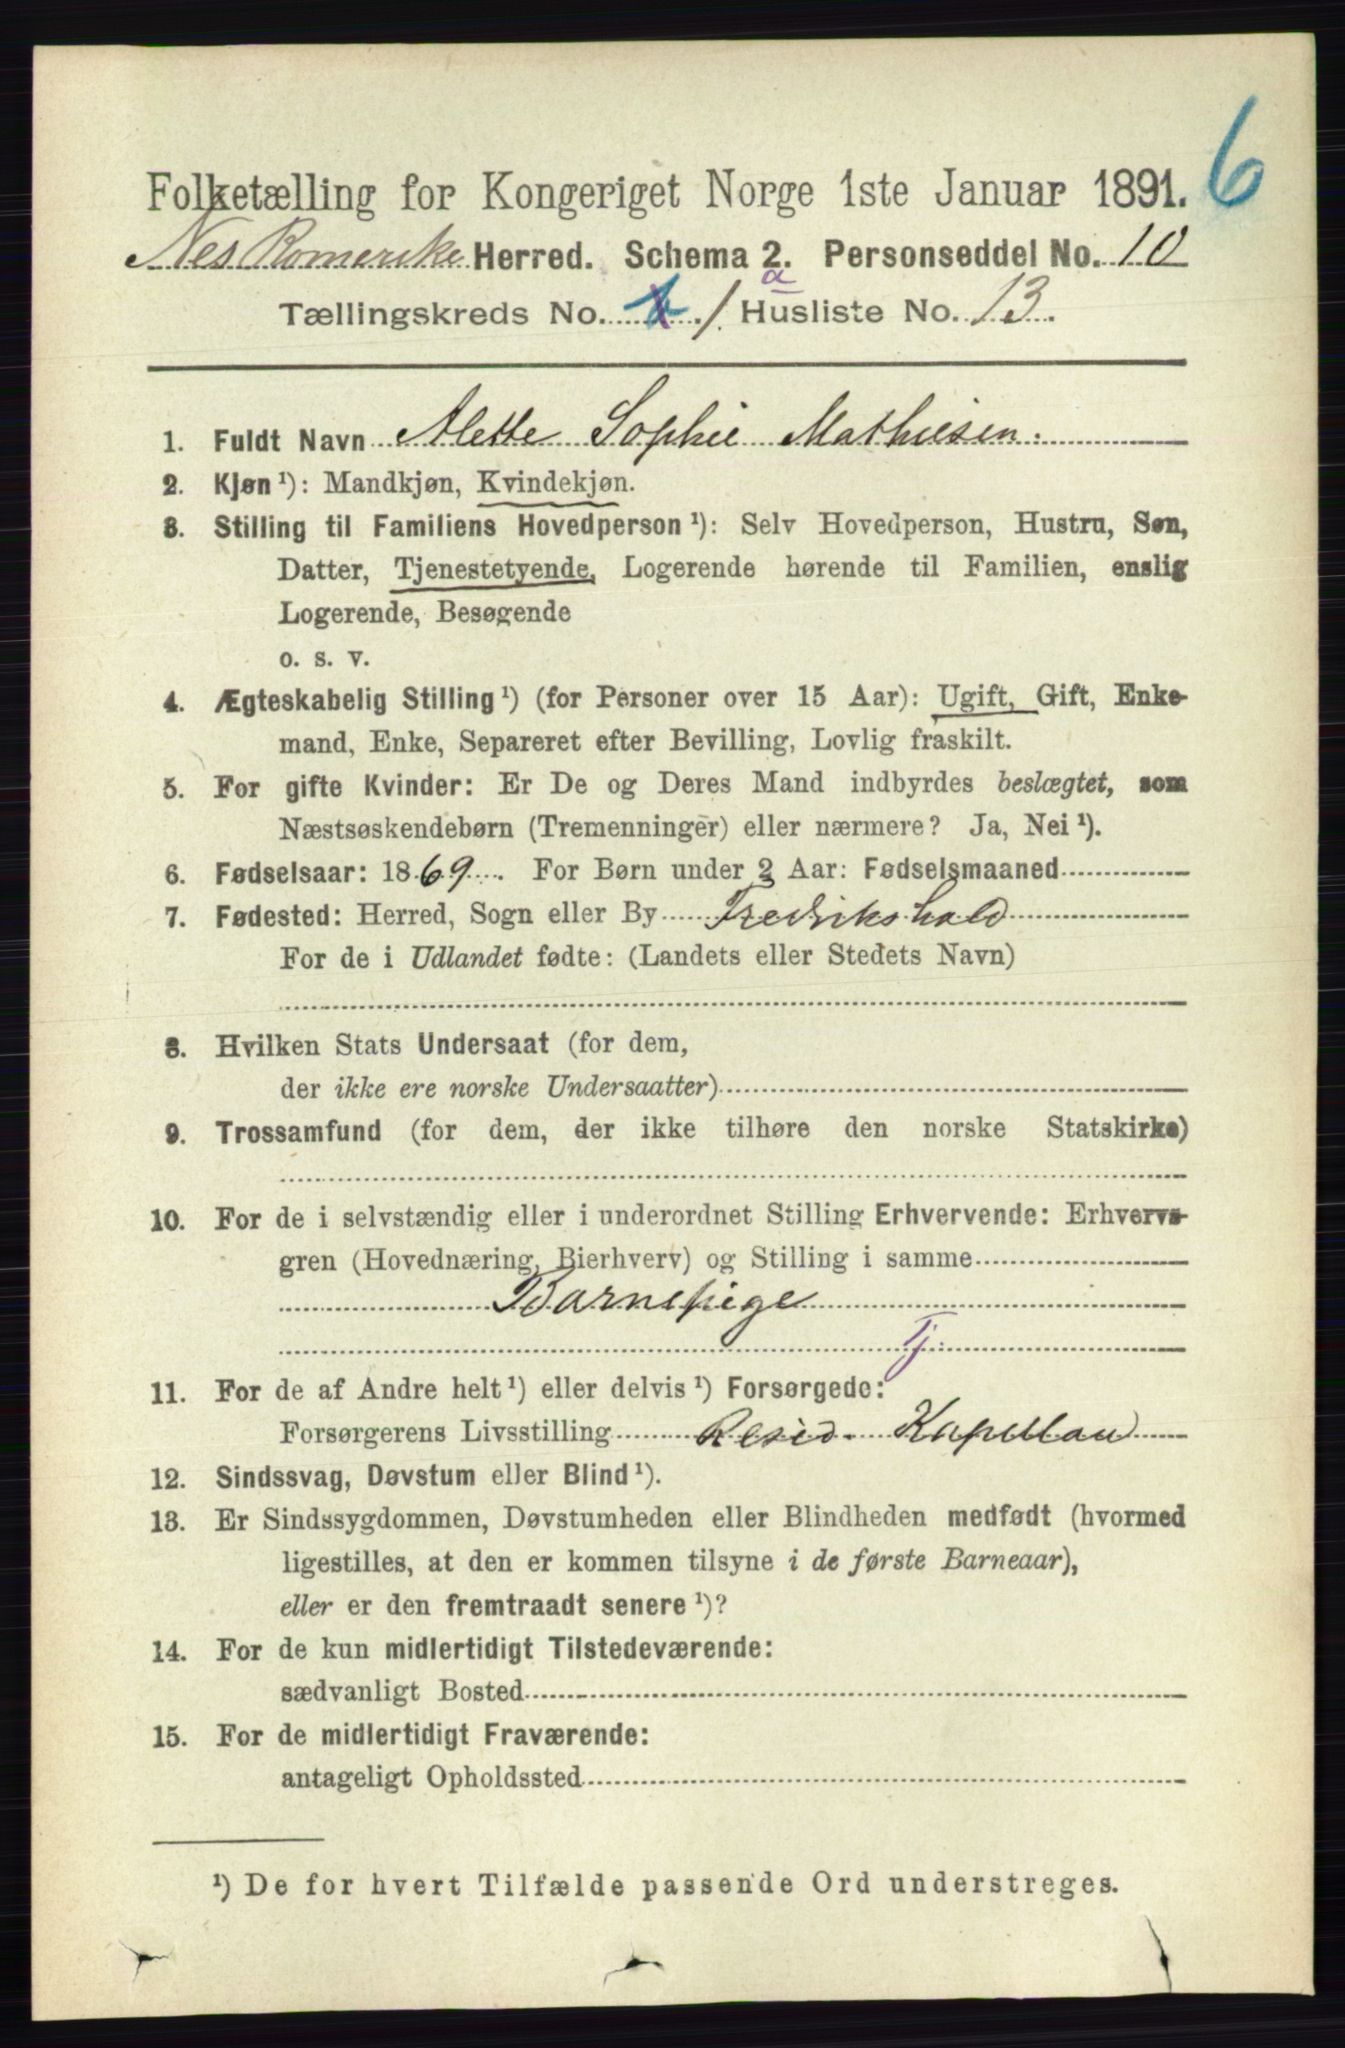 6
Folketælling for Kongeriget Norge 1ste Januar 1891.
Nes Romerike Herred. Schema 2. Personseddel No. 10
Tællingskreds No. 1 a Husliste No. 13.
1. Fuldt Navn Alette Sophie Mathiesen.
2. Kjøn ¹): Mandkjøn, Kvindekjøn.
3. Stilling til Familiens Hovedperson ¹): Selv Hovedperson, Hustru, Søn,
Datter, Tjenestetyende, Logerende hørende til Familien, enslig
Logerende, Besøgende
o. s. v.
4. Ægteskabelig Stilling ¹) (for Personer over 15 Aar): Ugift, Gift, Enke-
mand, Enke, Separeret efter Bevilling, Lovlig fraskilt.
5. For gifte Kvinder: Er De og Deres Mand indbyrdes beslægtet, som
Næstsøskendebørn (Tremenninger) eller nærmere? Ja, Nei ¹).
6. Fødselsaar: 1869. For Børn under 2 Aar: Fødselsmaaned
7. Fødested: Herred, Sogn eller By Fredrikshald
For de i Udlandet fødte: (Landets eller Stedets Navn)
8. Hvilken Stats Undersaat (for dem,
der ikke ere norske Undersaatter)
9. Trossamfund (for dem, der ikke tilhøre den norske Statskirke)
10. For de i selvstændig eller i underordnet Stilling Erhvervende: Erhvervs-
gren (Hovednæring, Bierhverv) og Stilling i samme
Barnepige
Tj.
11. For de af Andre helt ¹) eller delvis ¹) Forsørgede:
Forsørgerens Livsstilling Resid. Kapellan
12. Sindssvag, Døvstum eller Blind ¹).
13. Er Sindssygdommen, Døvstumheden eller Blindheden medfødt (hvormed
ligestilles, at den er kommen tilsyne i de første Barneaar),
eller er den fremtraadt senere ¹)?
14. For de kun midlertidigt Tilstedeværende:
sædvanligt Bosted
15. For de midlertidigt Fraværende:
antageligt Opholdssted
¹) De for hvert Tilfælde passende Ord understreges.